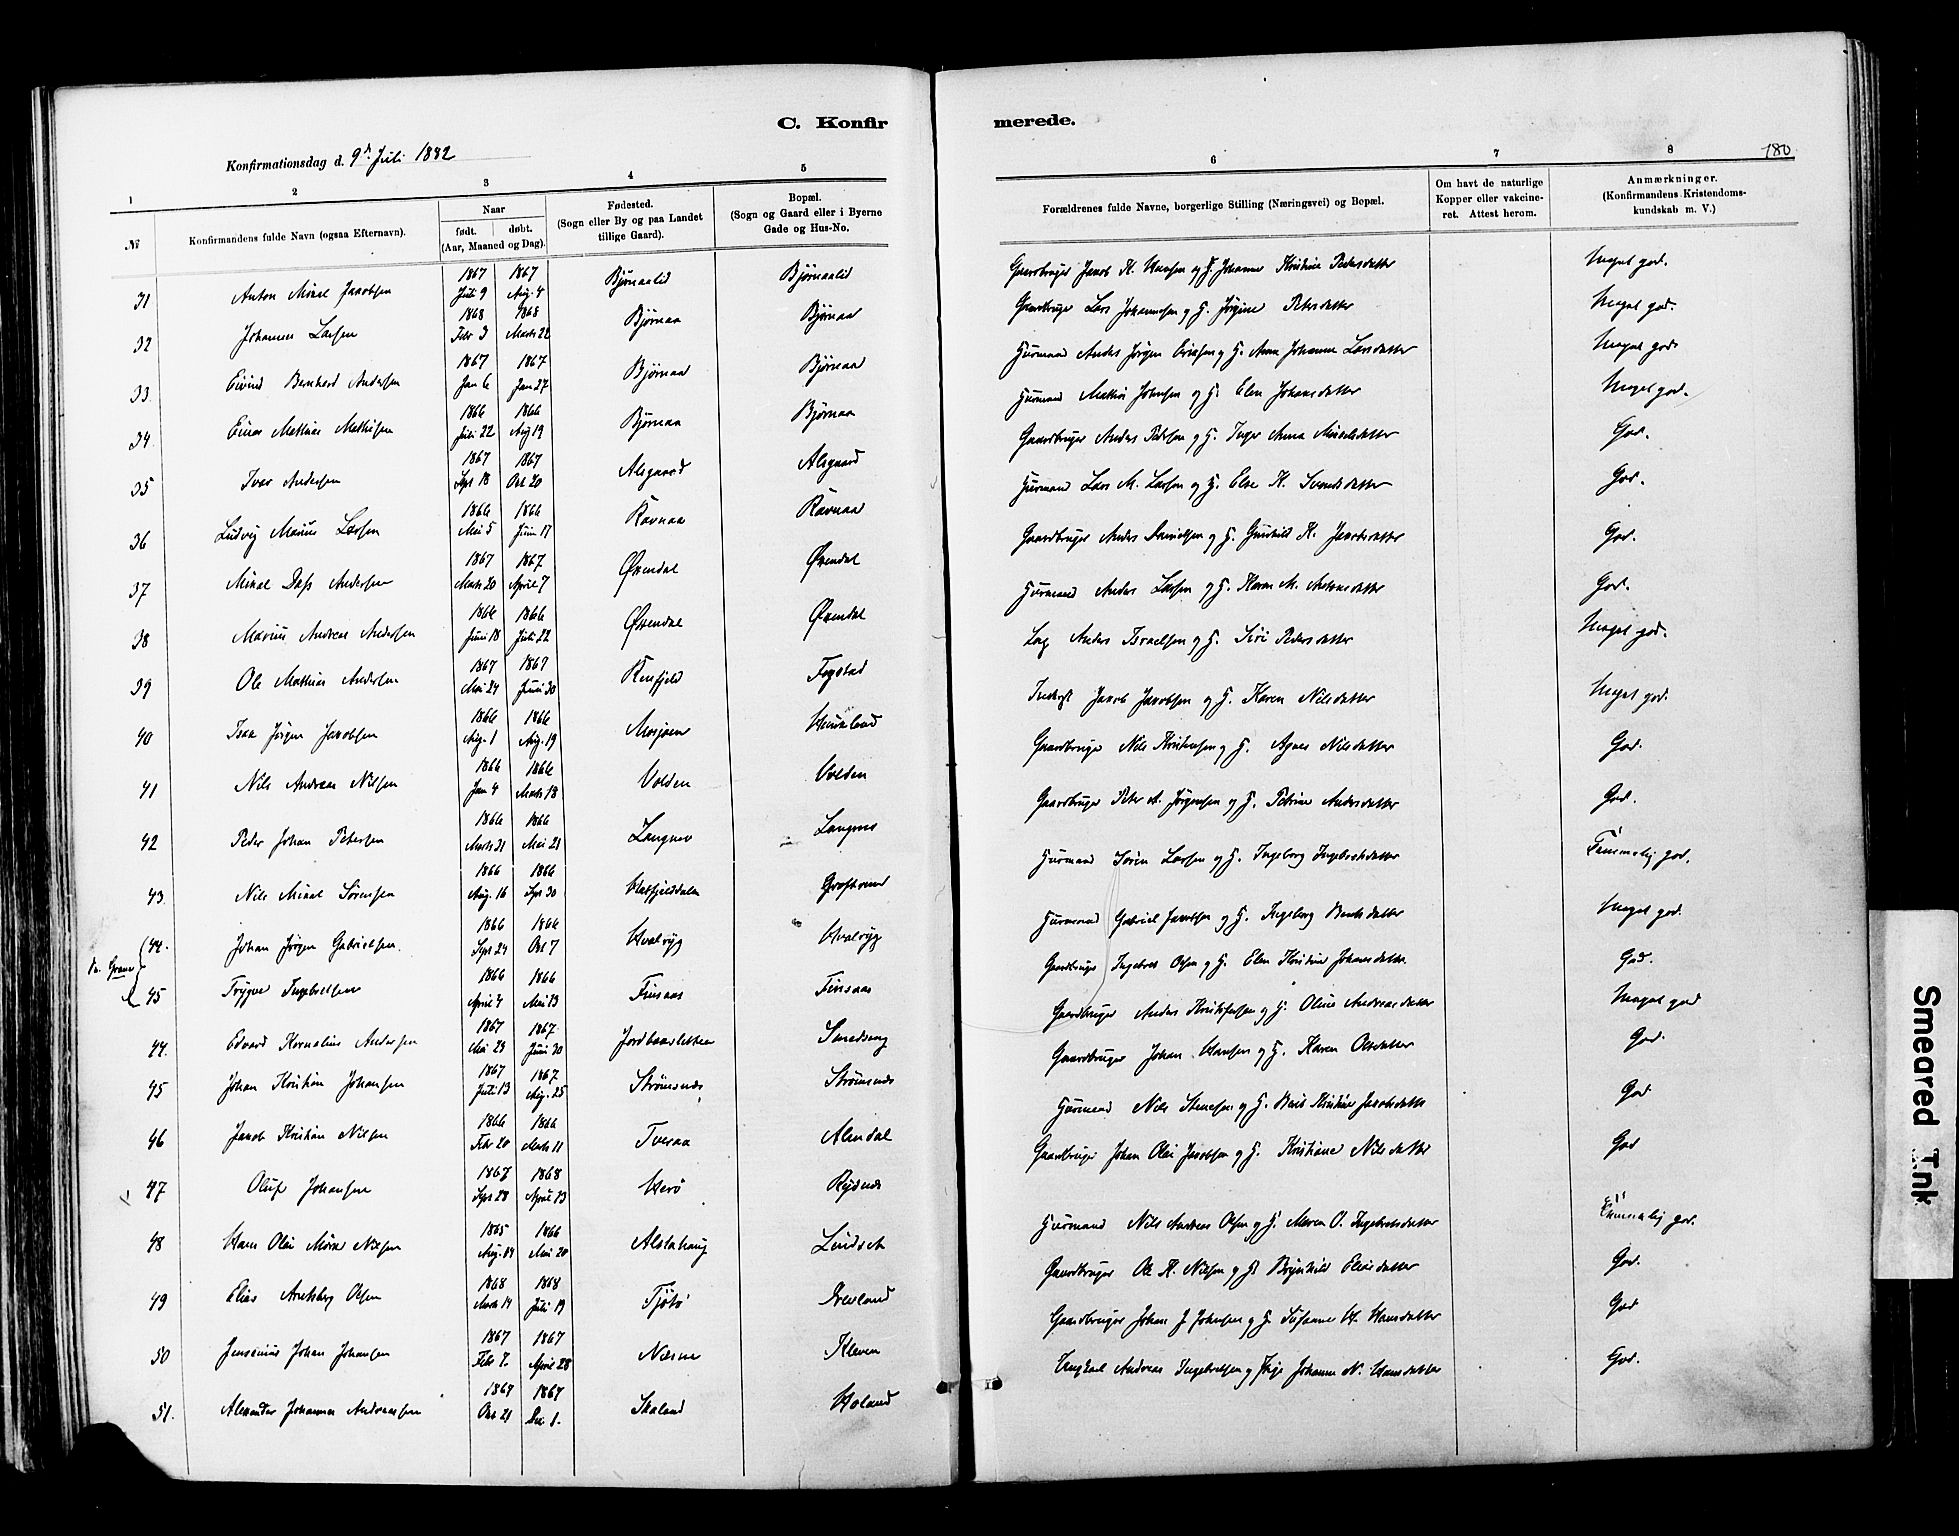 C. Konfir
merede.
180
Konfirmationsdag d. 9d Juli 1882
1 2 3 4 5
6 7 8
№
Konfirmandens fulde Navn (ogsaa Efternavn).
Naar
født. døbt.
(Aar, Maaned og Dag).
Fødested.
(Sogn eller By og paa Landet
tillige Gaard).
Bopæl.
(Sogn og Gaard eller i Byerne
Gade og Hus-No.
Forældrenes fulde Navne, borgerlige Stilling (Næringsvei) og Bopæl.
Om havt de naturlige
Kopper eller vakcine-
ret. Attest herom.
Anmærkninger.
(Konfirmandens Kristendoms-
kundskab m. V.)
31 Anton Mikal Jakobsen 1867 Juli 9 1867 Aug. 4 Bjørnaalid Bjørnaalid Gaardbruger Jakob H. Hansen og H. Johanne Kristine Pedersdatter Meget god.
32 Johannes Larsen 1868 Febr 3 1868 Marts 22 Bjørnaa Bjørnaa Gaardbruger Lars Johannesen og H. Jørgine Petersdatter Meget god.
33 Eivind Bernhard Andersen 1867 Jan 6 1867 Jan 27 Bjørnaa Bjørnaa Husmand Anders Jørgen Eriksen og H. Anna Johanna Larsdatter Meget god
34 Einar Mathias Mathisen 1866 Juli 22 1866 Aug 19 Bjørnaa Bjørnaa Husmand Mathias Johnsen og H. Elen Johansdatter Meget god.
35 Ivar Andersen 1867 Sept 18 1867 Okt 20 Alsgaard Alsgaard Gaardbruger Anders Pedersen og H. Inger Anna Mikalsdatter God.
36 Ludvig Marius Larsen 1866 Mai 5 1866 Juni 17 Ravnaa Ravnaa Husmand Lars M. Larsen og H. Else K. Svendsdatter God.
37 Mikal Dass Andersen 1867 Marts 20 1867 April 7 Øxendal Øxendal Gaardbruger Anders Danielsen og H. Gunhild K. Jakobsdatter God.
38 Marius Andreas Andersen 1866 Juni 18 1866 Juli 22 Øxendal Øxendal Husmand Anders Larsen og H. Karen M. Antonsdatter God.
39 Ole Mathias Andersen 1867 Mai 24 1867 Juni 30 Renfjeld Fagstad Anders Israelsen og H. Siri Pedersdatter Meget god.
40 Isak Jørgen Jakobsen 1866 Aug. 1 1866 Aug. 19 Mosjøen Jakob Jakobsen og H. Karen Nilsdatter Meget god.
41 Nils Andreas Nilsen 1866 Jan 4 1866 Marts 18 Volden Volden Gaardbruger Nils Kristensen og H. Agnes Nilsdatter God.
42 Peder Johan Petersen 1866 Marts 21 1866 Mai 21 Langnes Langnes Gaardbruger Peter A. Jørgensen og H. Petrine Andersdatter God.
43. Nils Mikal Sørensen 1866 Aug. 16 1866 Sept 30 Hatfjelddalen Husmand Sören Larsen og H. Ingeborg Ingebretsdatter Temmelig god.
44. Johan Jørgen Gabrielsen 1866 Sept 24 1866 Okt 7 Hvalryg Hvalryg Husmand Gabriel Jakobsen og H. Ingeborg Bentsdatter Meget god.
fra Grane
45 Trygve Ingebretsen 1866 April 4 1866 Mai 13 Finsaas Finsaas Gaardbruger Ingebret Olsen og H. Elen Kristine Johansdatter God.
44. Edvard Kornelius Andersen 1867 Mai 23 1867. Juni 30 Jordbrosletten Smedseng Gaardbruger Anders Kristensen og H. Oline Andreasdatter Meget god
45 Johan Kristian Johansen 1867 Juli 13 1867 Aug. 25 Strømsnes Strømsnes Gaardbruger Johan Hansen og H. Karen Olsdatter God.
46 Jakob Kristian Nilsen 1866 Febr 20 1866 Marts 11 Tveraa Almdal Husmand Nils Stensen og H. Berit Kristine Jakobsdatter God
47 Oluf Johansen 1867 Sept 28 1868 April 13 Herø Rynes Gaardbruger Johan Olai Jakobsen og H. Kristiane Nilsdatter God
48 Hans Olai Nilsen 1865 Aug. 1866 Mai 20 Alstahaug Lindset Husmand Nils Andreas Olsen og H. Maren O. Ingebretsdatter Temmelig god.
49 Elias Olsen 1868 Marts 14 1868 Juli 19 Tjøtø Drevland Gaardbruger Ole K. Nilsen og H. Brynhild Eliasdatter God.
50 Jensenius Johan Johansen 1867 Febr 7. 1867 April 28 Næsna Kleven Gaardbruger Johan J Johnsen og H. Susanne H. Hansdatter God
51. Alexander Johannes Andreassen 1867 Okt 21 1867 Dec. 1. Skaland Holand Ungkarl Andreas Ingebretsen og Pige Johanna N. Hansdatter God.
Smeared Ink